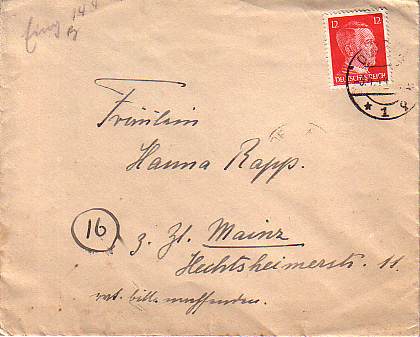 Eing 14 8
12 12
DEUTSCHES REICH
* 1 q
Fräulein
Hanna Rapp.
16
z. Zt. Mainz
Hechtsheimerstr. 11
bitte nachsenden.